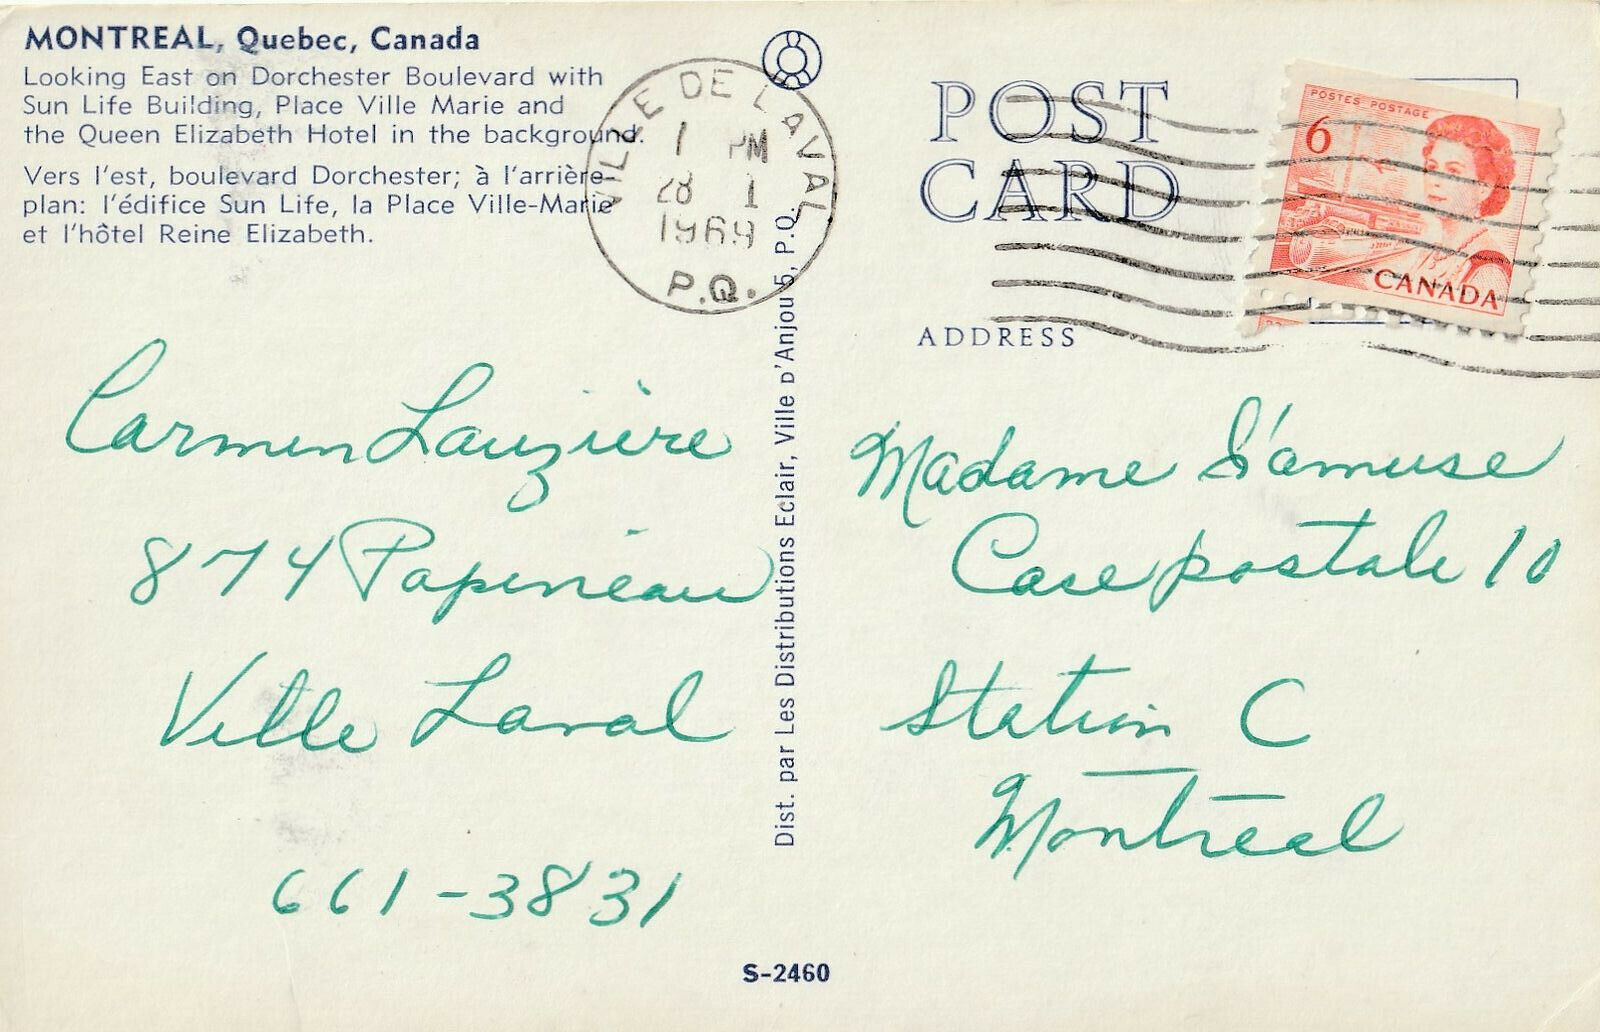 MONTREAL, Quebec, Canada
Looking East on Dorchester Boulevard with
Sun Life Building, Place Ville Marie and
the Queen Elizabeth Hotel in the background.
Vers l'est, boulevard Dorchester; à l'arrière-
plan: l'édifice Sun Life, la Place Ville-Marie
et l'hôtel Reine Elizabeth.
VILLE DE LAVAL
1 PM
28 1
1969
P.Q.
POST
CARD
ADDRESS
POSTES POSTAGE
6
CANADA
Carmen Lauzière
874 Papineau
Ville Laval
661-3831
Dist. par Les Distributions Eclair, Ville D'Anjou 5, P.Q.
Madame S'amuse
Case postale 10
Station C
Montreal
S-2460